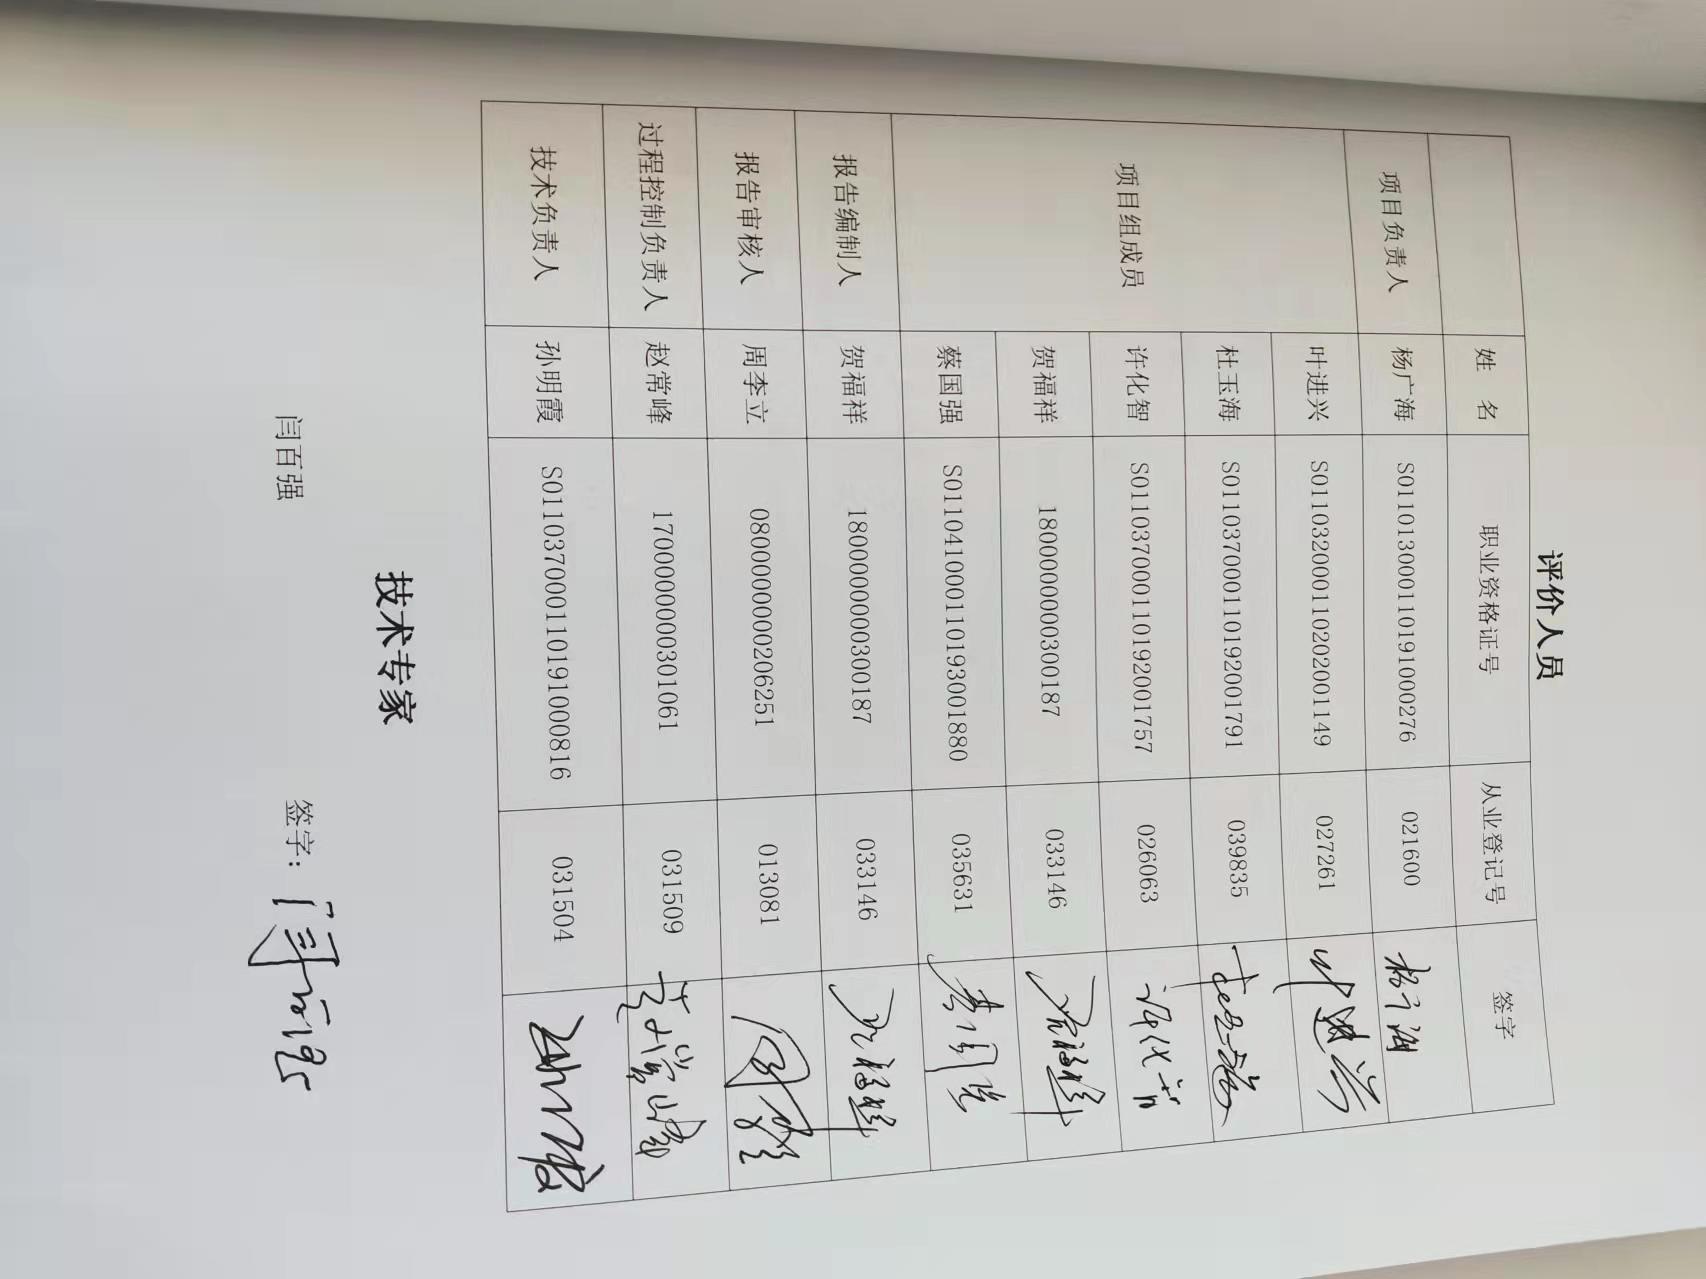 评价人员
姓 名 职业资格证号 从业登记号 签字
项目负责人 杨广海 S011013000110191000276 021600 杨广海
项目组成员 叶进兴 S011032000110202001149 027261 叶进兴
杜玉海 S011037000110192001791 039835 杜玉海
许化智 S011037000110192001757 026063 许化智
贺福祥 1800000000300187 033146 贺福祥
蔡国强 S011041000110193001880 035631 蔡国强
报告编制人 贺福祥 1800000000300187 033146 贺福祥
报告审核人 周李立 0800000000206251 013081
过程控制负责人 赵常峰 1700000000301061 031509 赵常峰
技术负责人 孙明霞 S011037000110191000816 031504 孙明霞
技术专家
闫百强 签字: 闫百强